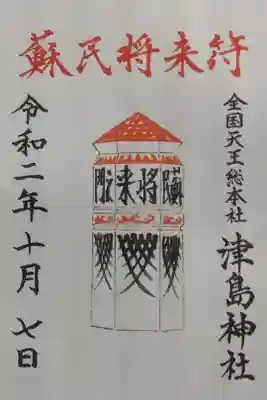 蘇民将来符
全国天王総本社
津島神社
将来
令和二年十月七日